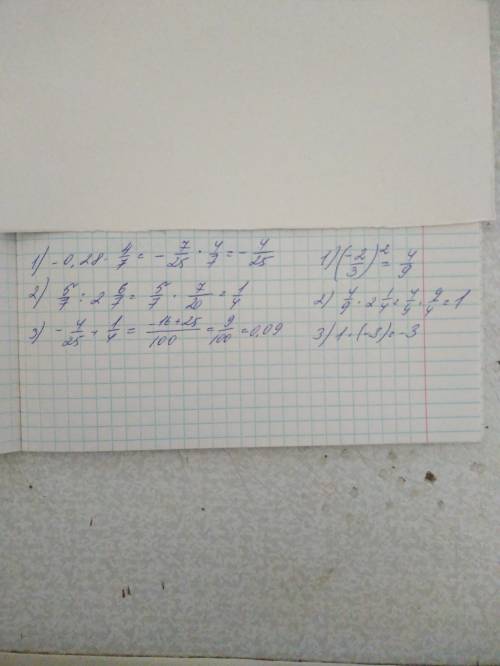 1) -0,28 · 4/7 = -7/25 · 4/7 = -4/25
2) 5/7 : 2 6/7 = 5/7 · 7/20 = 1/4
3) -4/25 + 1/4 = (-16+25)/100 = 9/100 = 0,09
1) (-2/3)² = 4/9
2) 4/9 · 2 1/4 = 4/9 · 9/4 = 1
3) 1 · (-3) = -3